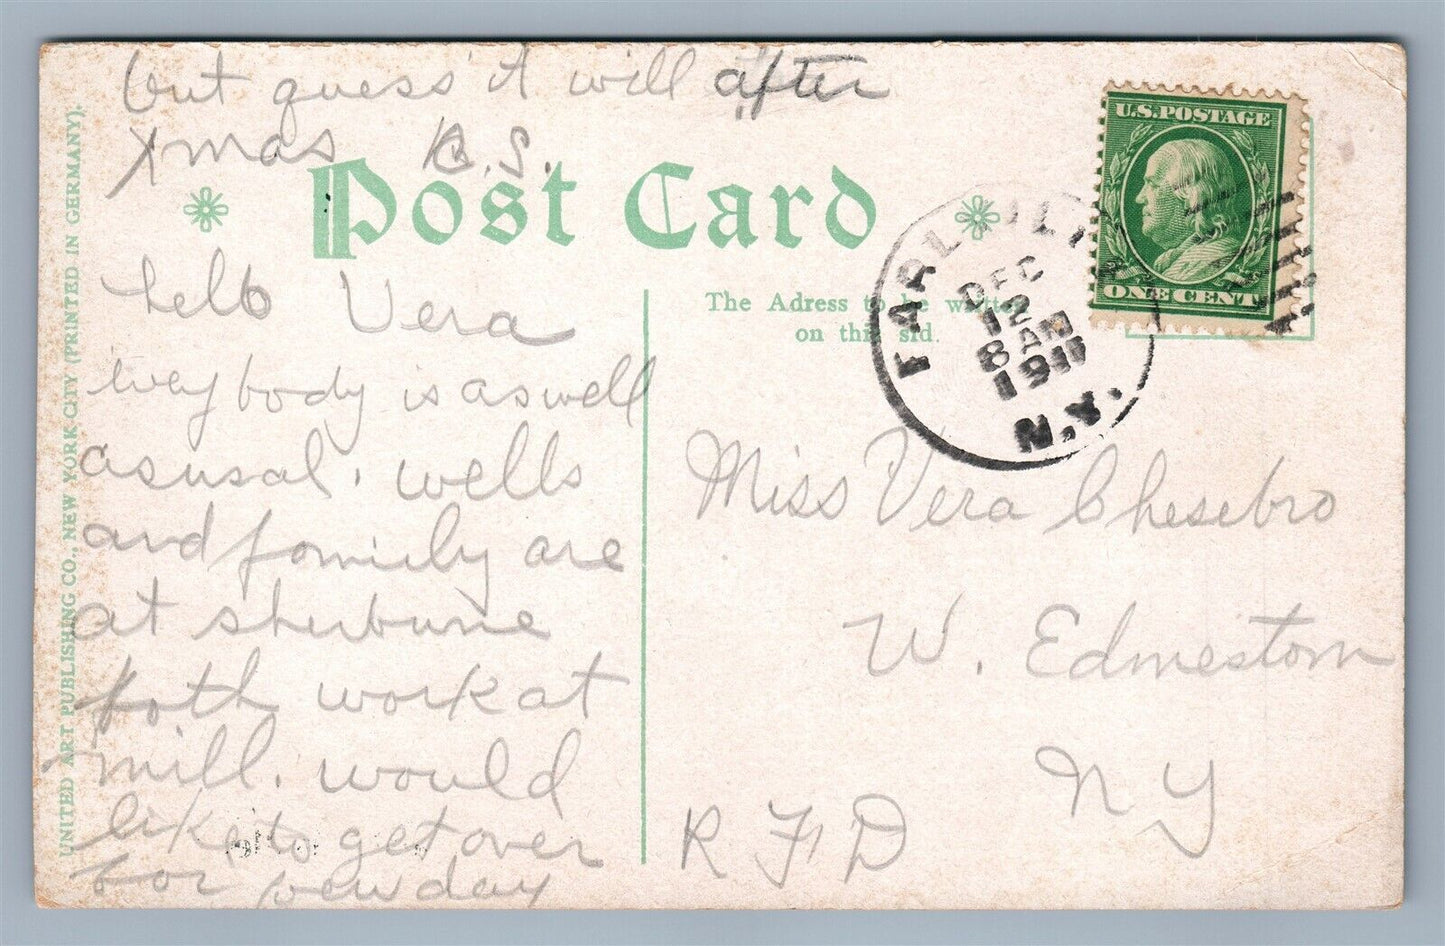 but guess it will after
Xmas B.S.
Post Card
The Adress to be written
on this sid.
UNITED ART PUBLISHING CO., NEW YORK-CITY (PRINTED IN GERMANY).
U.S. POSTAGE
ONE CENT
EARLVILLE
DEC
12
8 AM
1911
N.Y.
hello Vera
every body is as well
as usual. wells
and family are
at sherburne
both work at
mill. would
like to get over
for few day
Miss Vera Chesebro
W. Edmeston
N Y
R F D